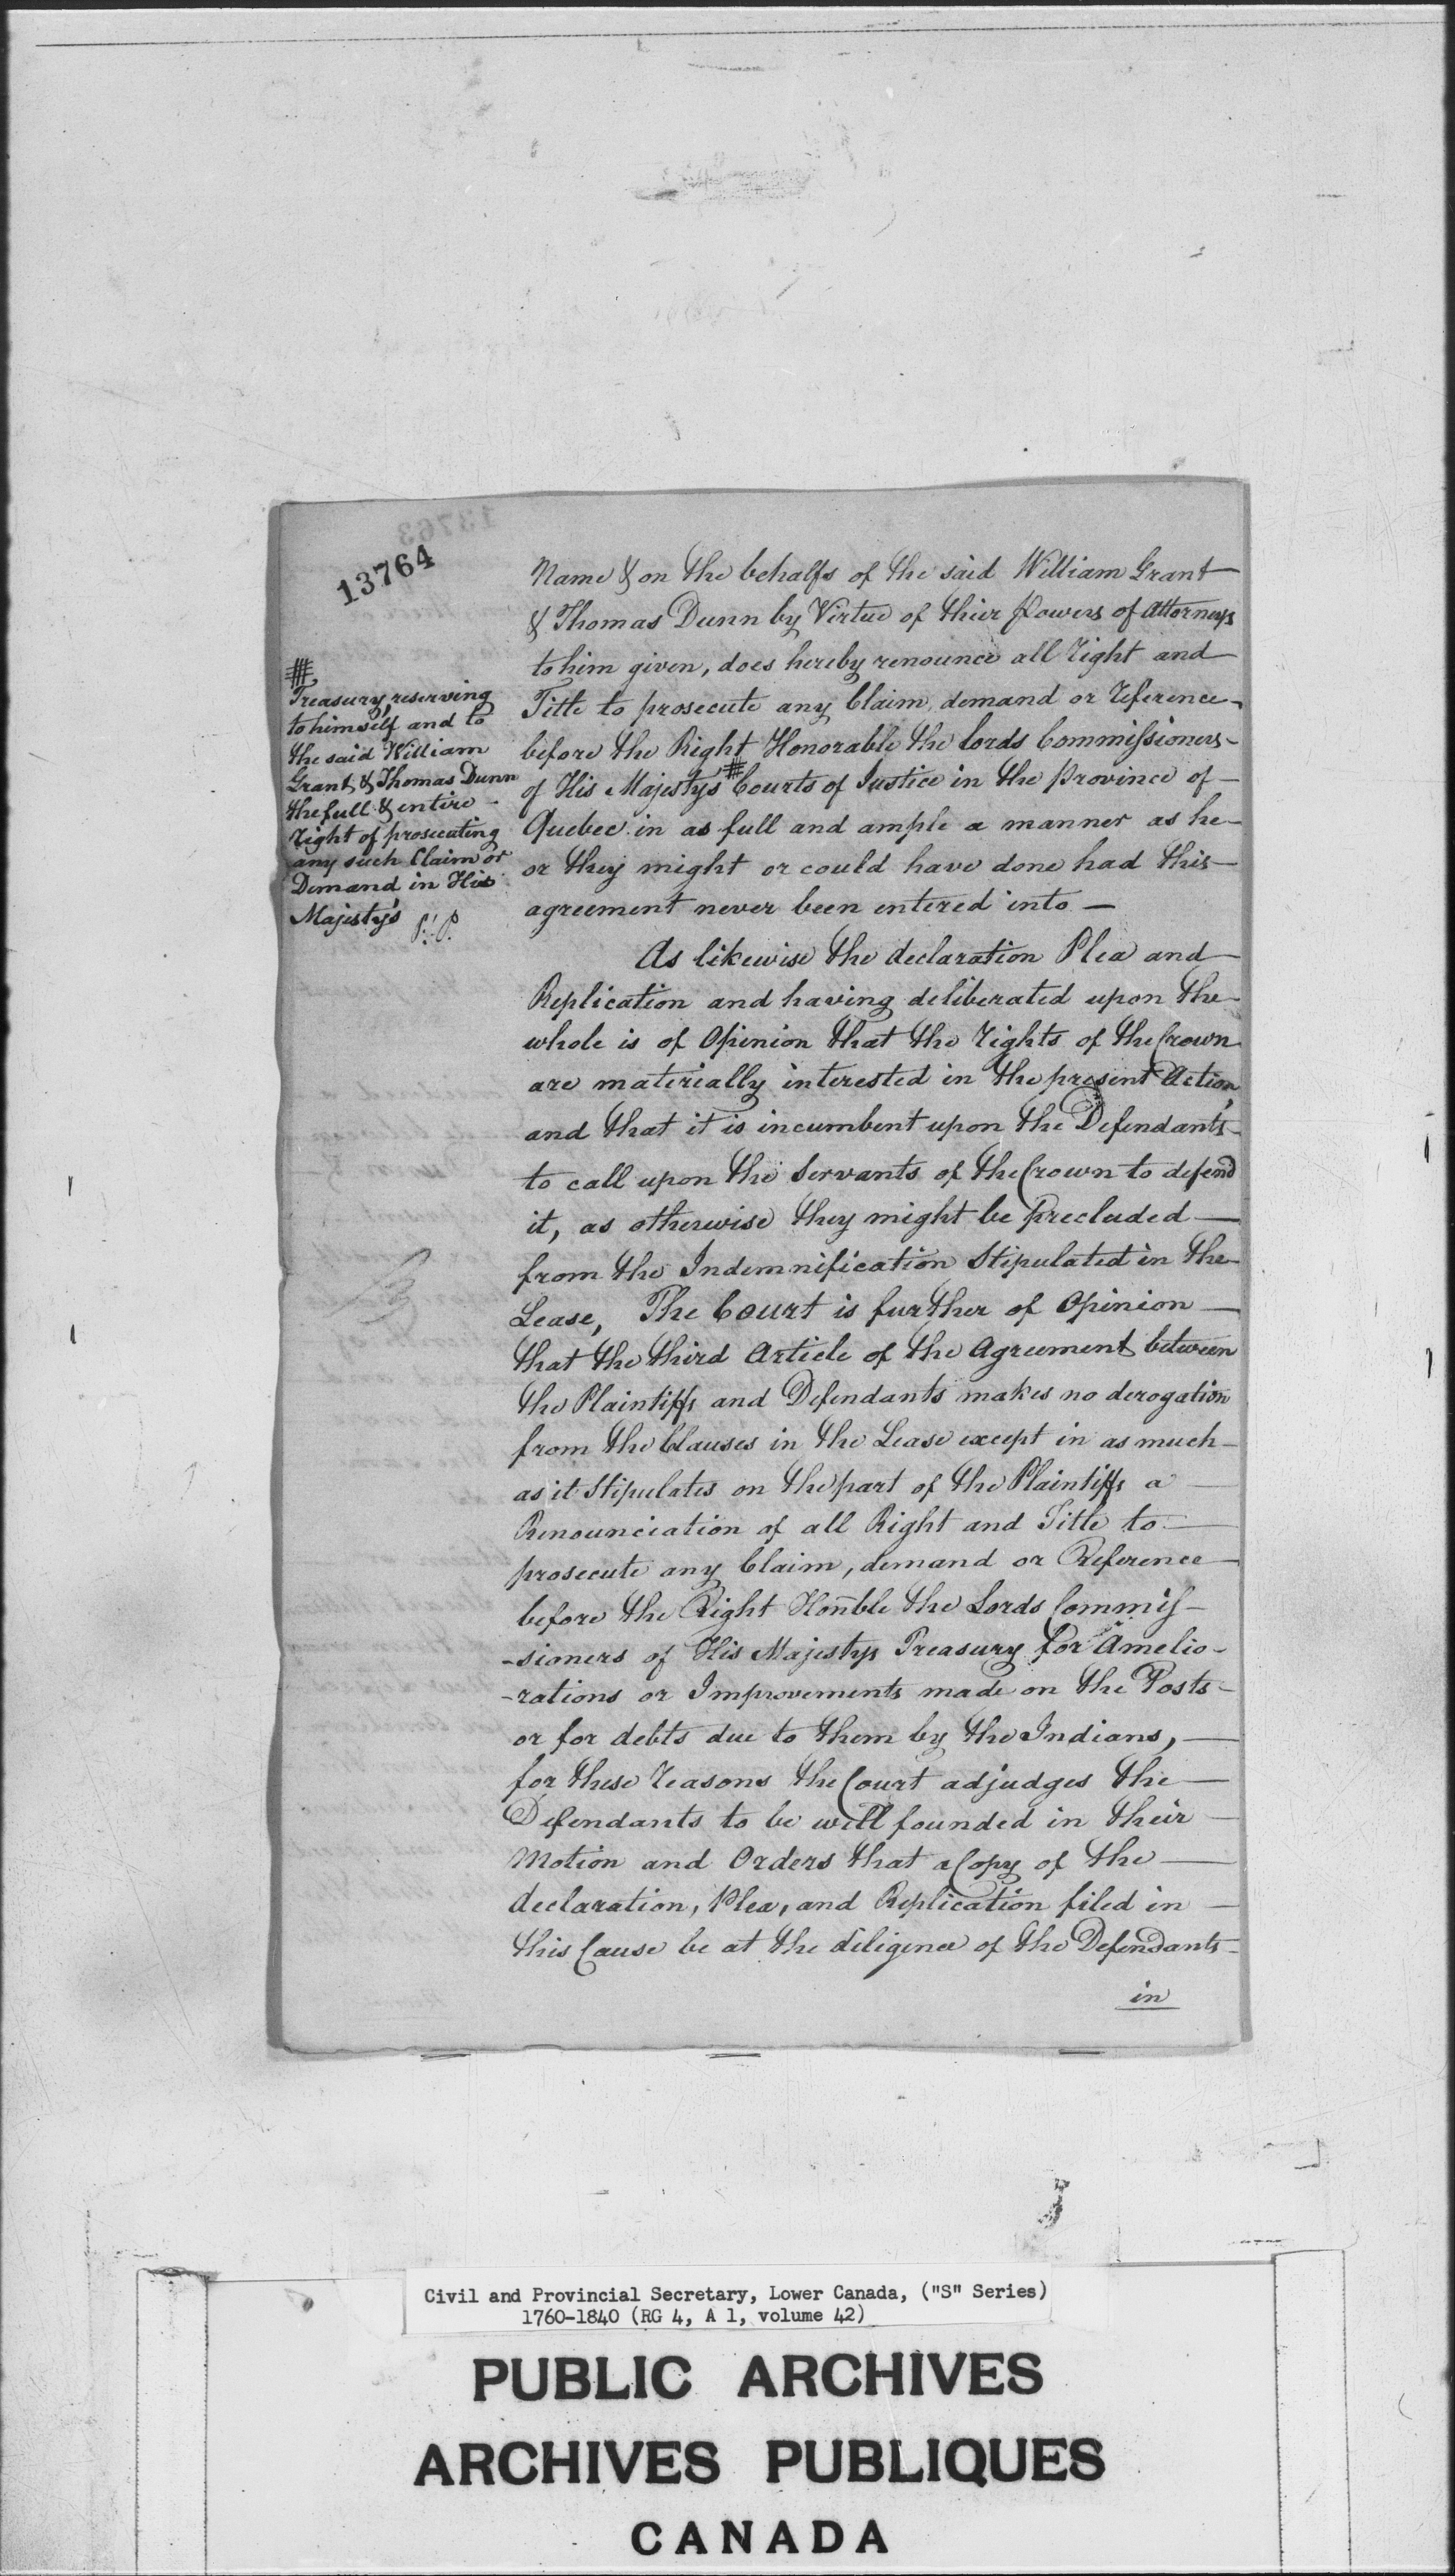 13764
Name & on the behalfs of the said William Grant
& Thomas Dunn by Virtue of their Powers of Attorneys
to him given, does hereby renounce all right and
Title to prosecute any Claim, demand or reference
before the Right Honorable the Lords Commissioners
of His Majestys # Courts of Justice in the Province of
Quebec in as full and ample a manner as he
or they might or could have done had this
agreement never been entered into —
#
Treasury, reserving
to himself and to
the said William
Grant & Thomas Dunn
the full & entire
right of prosecuting
any such Claim or
Demand in His
Majesty's
As likewise the declaration Plea and
Replication and having deliberated upon the
whole is of Opinion that the rights of the Crown
are materially interested in the present Action,
and that it is incumbent upon the Defendants
to call upon the Servants of the Crown to defend
it, as otherwise they might be precluded —
from the Indemnification Stipulated in the
Lease, The Court is further of Opinion —
that the third Article of the Agreement between
the Plaintiffs and Defendants makes no derogation
from the Clauses in the Lease except in as much
as it Stipulates on the part of the Plaintiffs a —
Renounciation of all Right and Title to —
prosecute any Claim, demand or Reference
before the Right Honble the Lords Commis-
-sioners of His Majestys Treasury for Amelio-
-rations or Improvements made on the Posts
or for debts due to them by the Indians, —
for these reasons the Court adjudges the —
Defendants to be well founded in their —
Motion and Orders that a Copy of the —
declaration, Plea, and Replication filed in —
this Cause be at the diligence of the Defendants
in
Civil and Provincial Secretary, Lower Canada, ("S" Series)
1760-1840 (RG 4, A 1, volume 42)
PUBLIC ARCHIVES
ARCHIVES PUBLIQUES
CANADA